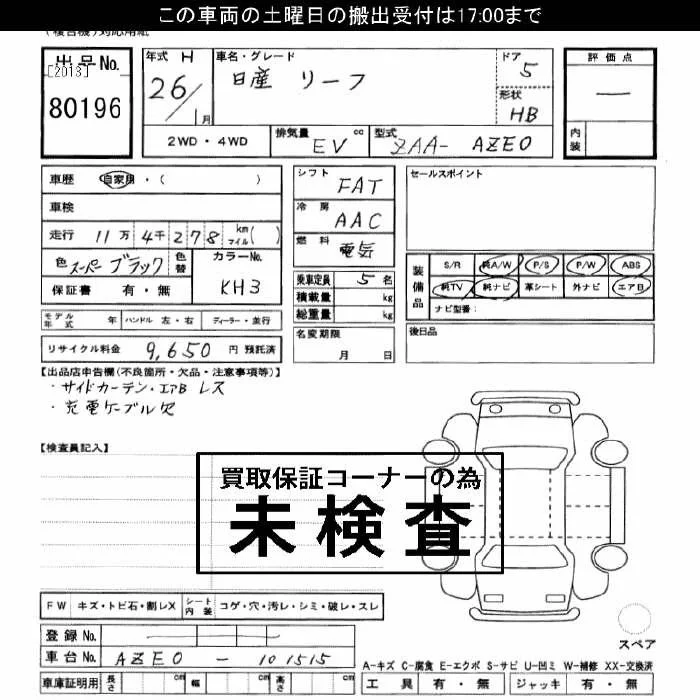 この車両の土曜日の搬出受付は17:00まで
(複合機)対応用紙
出品No. [2013] 80196
年式 H 26/1月
車名・グレード 日産 リーフ
ドア 5
形状 HB
2WD・4WD
排気量 EV cc
型式 ZAA- AZE0
評価点 —
内装
車歴 自家用・( )
車検
走行 11万4千278 km マイル( )
色 スーパーブラック 色替
カラーNo. KH3
保証書 有・無
モデル年式 年 ハンドル 左・右 ディーラー・並行
リサイクル料金 9,650 円 預託済
シフト FAT
冷房 AAC
燃料 電気
乗車定員 5名
積載量 kg
総重量 kg
名変期限 月 日
セールスポイント
装備品 S/R 純A/W P/S P/W ABS
純TV 純ナビ 革シート 外ナビ エアB
ナビ型番:
後日品
【出品店申告欄(不良箇所・欠品・注意事項等)】
・サイドカーテン・エアB レス
・充電ケーブル欠
【検査員記入】
買取保証コーナーの為
未検査
FW キズ・トビ石・割レX シート内装 コゲ・穴・汚レ・シミ・破レ・スレ
登録No.
車台No. AZE0 - 101515
車庫証明用 長さ cm 幅 cm 高さ cm
スペア
A-キズ C-腐食 E-エクボ S-サビ U-凹ミ W-補修 XX-交換済
工具 有・無 ジャッキ 有・無